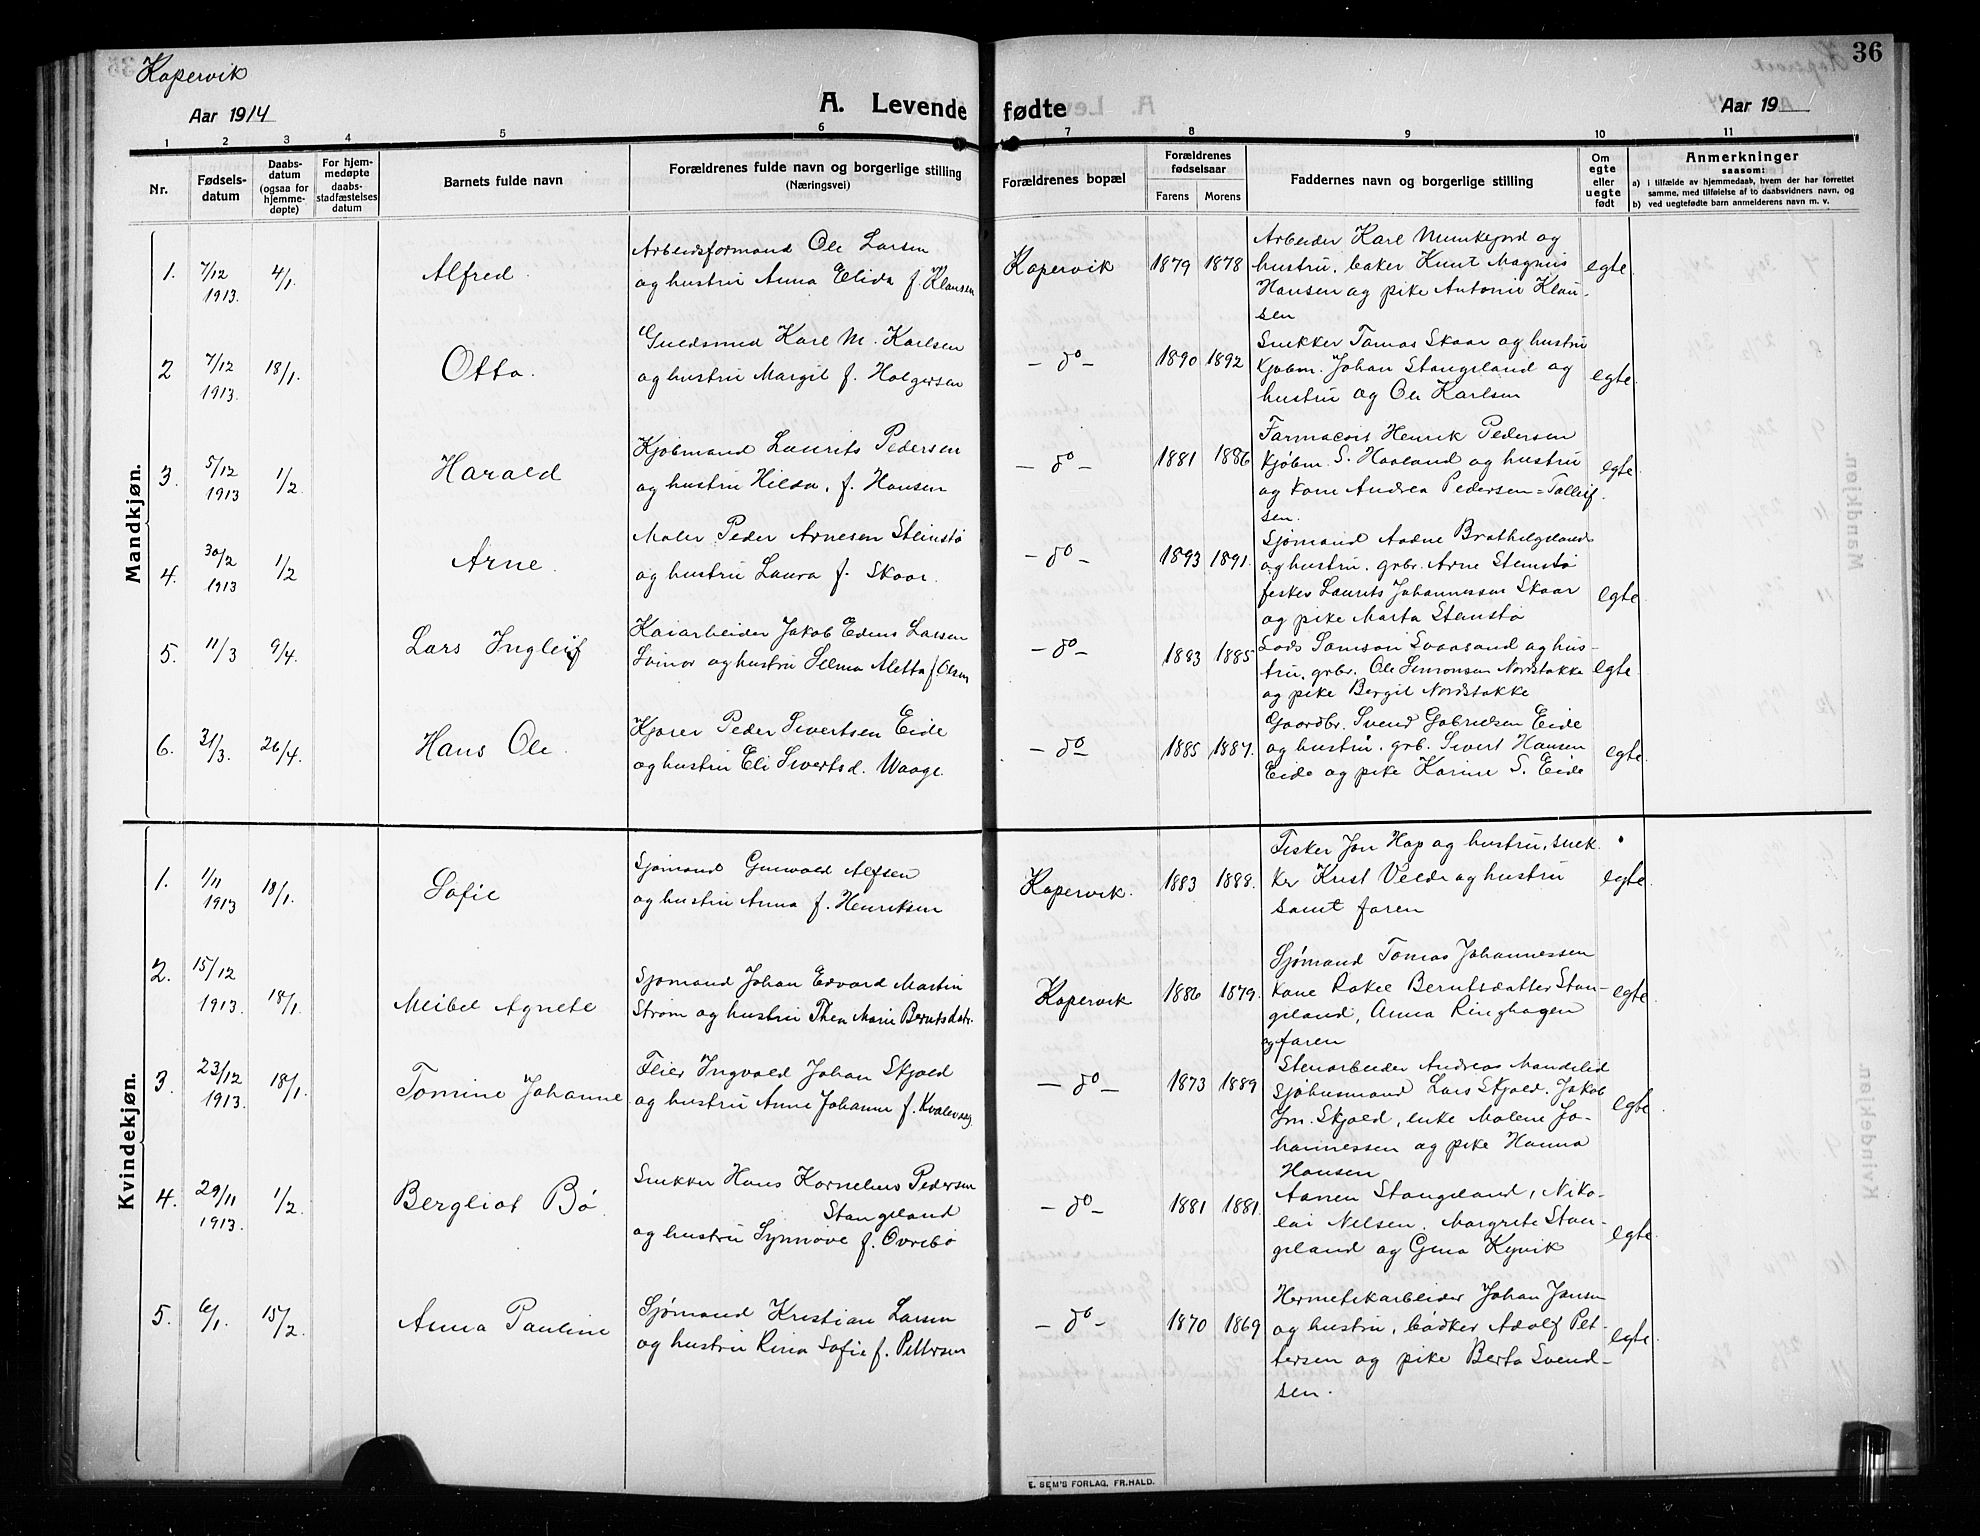 Kopervik
36
Aar 1914
A. Levende fødte
Aar 19
1 2 3 4 5 6 7 8 9 10 11
Nr.
Fødselsdatum
Daabsdatum (ogsaa for hjemmedøpte)
For hjemmedøpte daabsstadfæstelses datum
Barnets fulde navn
Forældrenes fulde navn og borgerlige stilling
(Næringsvei)
Forældrenes bopæl
Forældrenes fødselsaar
Farens Morens
Faddernes navn og borgerlige stilling
Om egte eller uegte født
Anmerkninger
saasom:
a) i tilfælde av hjemmedaab, hvem der har forrettet samme, med tilføielse af to daabsvidners navn, og
b) ved uegtefødte barn anmelderens navn m. v.
Mandkjøn.
1. 7/12 1913. 4/1. Alfred.
Arbeidsformand Ole Larsen
og hustru Anna Elida f. Klausen
Kopervik 1879 1878
Arbeider Karl Munkejord og
hustru, baker Knut Magnus
Hansen og pike Antonie Klau-
sen
egte.
2 7/12 1913. 18/1. Otto.
Guldsmed Karl M. Karlsen
og hustru Margit f. Holgersen
- do - 1890 1892
Snekker Tomas Skaar og hustru
Kjøbm. Johan Stangeland og
hustru og Ole Karlsen
egte.
3. 5/12 1913 1/2 Harald
Kjøbmand Laurits Pedersen
og hustru Hilda, f. Hansen
- do - 1881 1886
Farmaceut Henrik Pedersen
Kjøbm. S. Haaland og hustru
og kone Andrea Pedersen = Tollef-
sen.
egte
4. 30/2 1913 1/2 Arne.
Maler Peder Arnesen Stensto
og hustru Laura f. Skaar.
- do - 1893 1891.
Sjømand Aadne Brathelgeland
og hustru. grbr. Arne Stensto
fisker Laurits Johannessen Skaar
og pike Marta Stensto
egte.
5. 11/3 9/4. Lars Ingleif
Kaiarbeider Jakob Edens Larsen
Svinor og hustru Selma Metta f. Olsen
- do - 1883 1885
Lods Samson Svaasand og hus-
tru, grbr. Ole Simonsen Nordstokke
og pike Bergit Nordstokke
egte.
6. 31/3. 26/4. Hans Ole.
Kjører Peder Sivertsen Eide
og hustru Eli Sivertsd. Waage.
- do - 1885 1887.
Gaardbr. Svend Gabrielsen Eide
og hustru. grb. Sivert Hansen
Eide og pike Karine S. Eide
egte.
Kvindekjøn.
1. 1/11 1913 18/1. Sofie
Sjømand Gunvald Alfsen
og hustru Anna f. Henriksen
Kopervik. 1883 1888.
Fisker Jon Hop og hustru, snek-
ker Krist Velde og hustru
samt faren
egte.
2. 15/12 1913. 18/1. Meibel Agnete
Sjømand Johan Edvard Martin
Strøm og hustru Thea Marie Berntsdatr.
Kopervik 1886 1879.
Sjømand Tomas Johannessen
Kone Rakel Berntsdatter Stan-
geland, Anna Ringhagen
og faren
egte.
3. 23/12 1913. 18/1. Tomine Johanne
Feier Ingvald Johan Skjold
og hustru Anne Johanne f. Kvalevaag
- do - 1873 1889
Stenarbeider Andreas Mandelid
Sjøhusmand Lars Skjold. Jakob
Skjold, enke Malene Jo-
hannessen og pike Hanna
Hansen
egte.
4. 29/11 1913. 1/2. Bergliot Bø.
Snekker Hans Kornelius Pedersen
Stangeland
og hustru Synnøve f. Ovrebø
- do - 1881 1881.
Aanen Stangeland, Niko-
lai Nilsen. Margrete Stan-
geland og Gina Kyvik
egte.
5. 6/1. 15/2. Anna Pauline
Sjømand Kristian Larsen
og hustru Rina Sofie f. Pettersen
- do - 1870 1869
Hermetikarbeider Johan Jansen
og hustru, bødker Adolf Pet-
tersen og pike Berta Svend-
sen.
egte.
E. SEM'S FORLAG, FR.HALD.